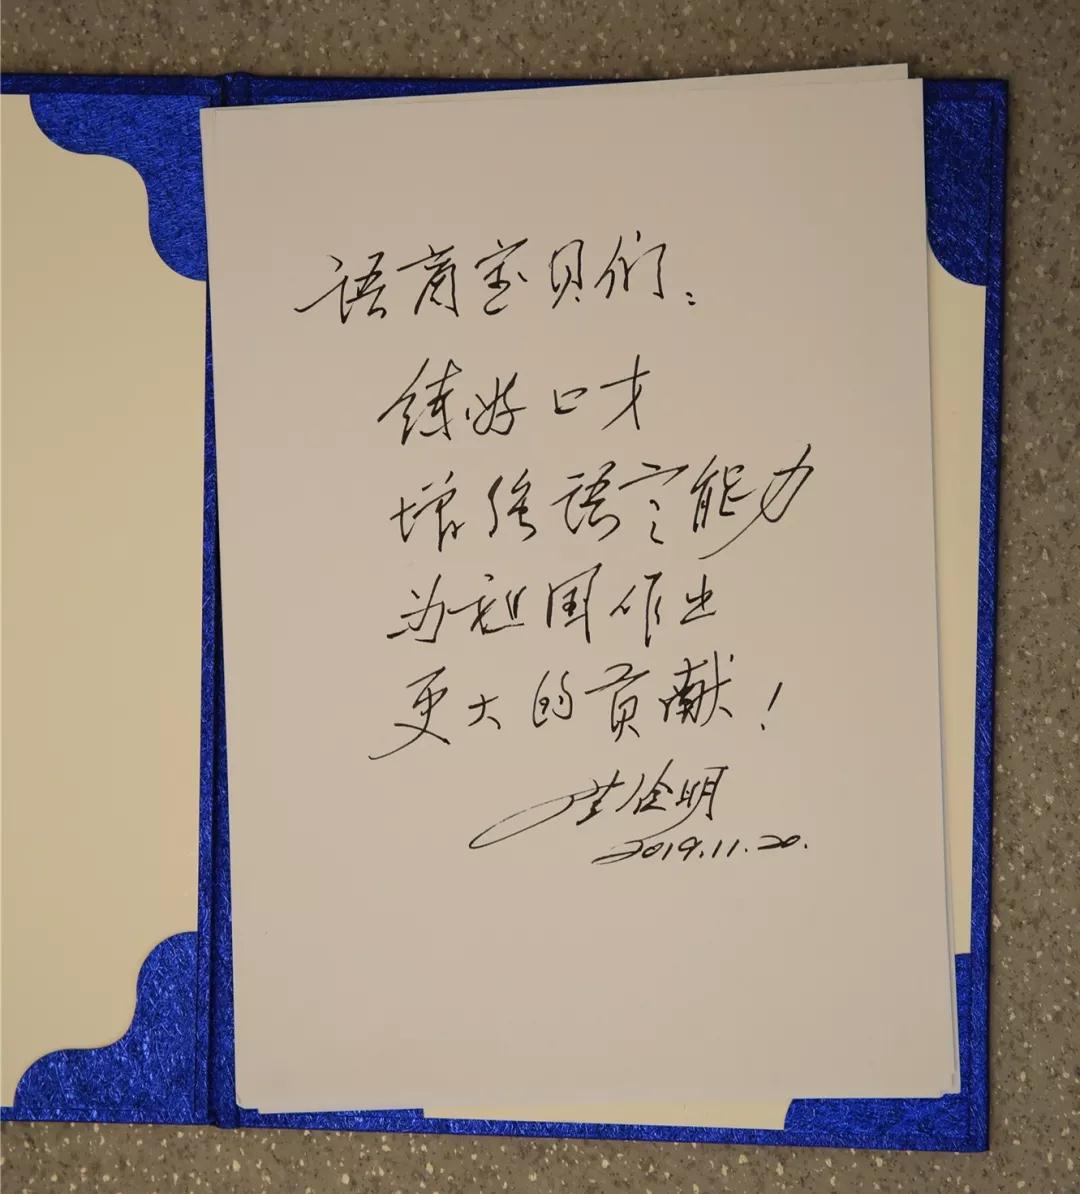 语育宝贝们:
练好口才
增强语言能力
为祖国作出
更大的贡献!
2019.11.20.